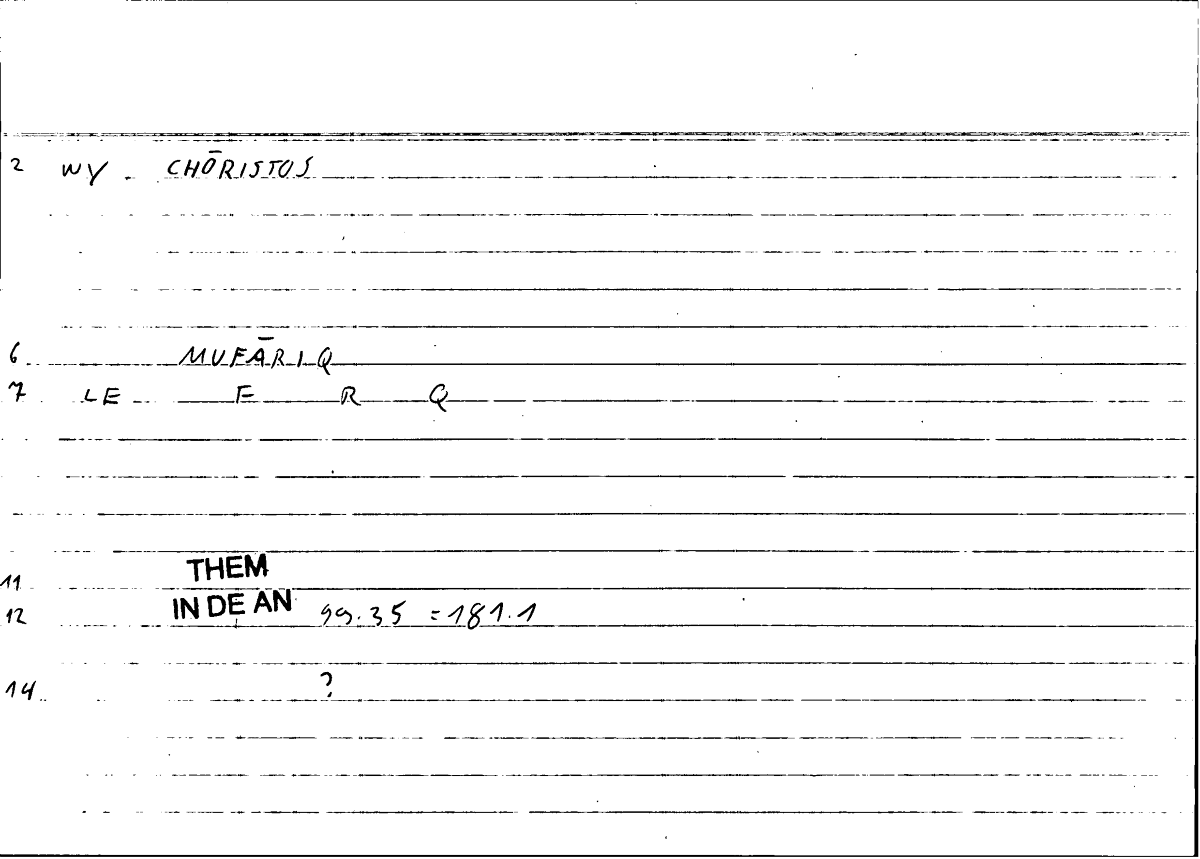 2 WY. CHŌRISTOS
6 MUFĀRIQ
7 LE F R Q
THEM
11
12 IN DE AN 99.35 = 181.1
14 ?